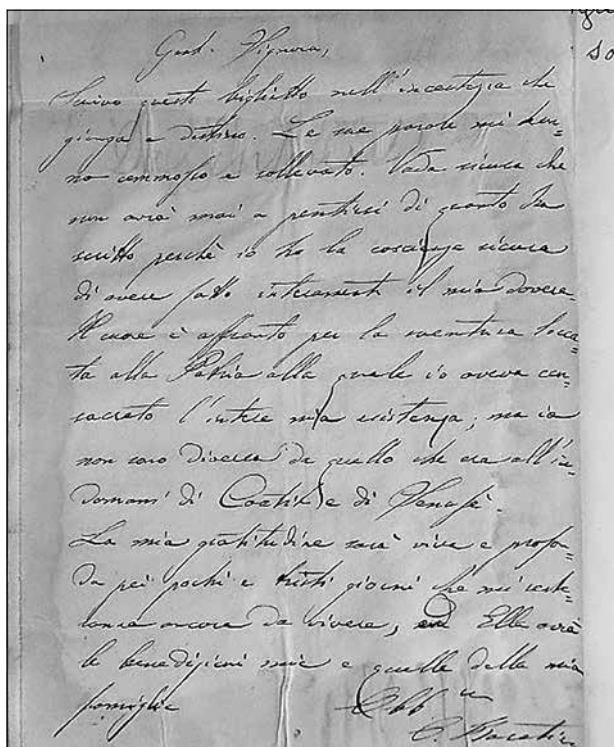 Gent. Signora,
Scrivo questo biglietto nell'incertezza che
giunga a destino. Le sue parole mi han-
no commosso e sollevato. Vada sicura che
non avrà mai a pentirsi di quanto ha
scritto perchè io ho la coscienza sicura
di avere fatto interamente il mio dovere.
Il cuore è affranto per la sventura tocca-
ta alla Patria alla quale io aveva con-
sacrato l'intera mia esistenza; ma io
non sono diverso da quello che era all'in-
domani di Coatit e di Senafè.
La mia gratitudine sarà viva e profon-
da pei pochi e tristi giorni che mi reste-
ranno ancora da vivere, ed Ella avrà
le benedizioni mie e quelle della mia
famiglia
Obb
O. Baratieri